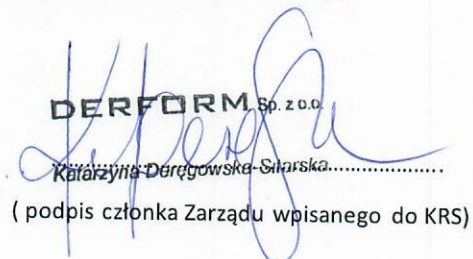 DERFORM Sp. z o.o.
Katarzyna Deręgowska-Sitarska
( podpis członka Zarządu wpisanego do KRS)